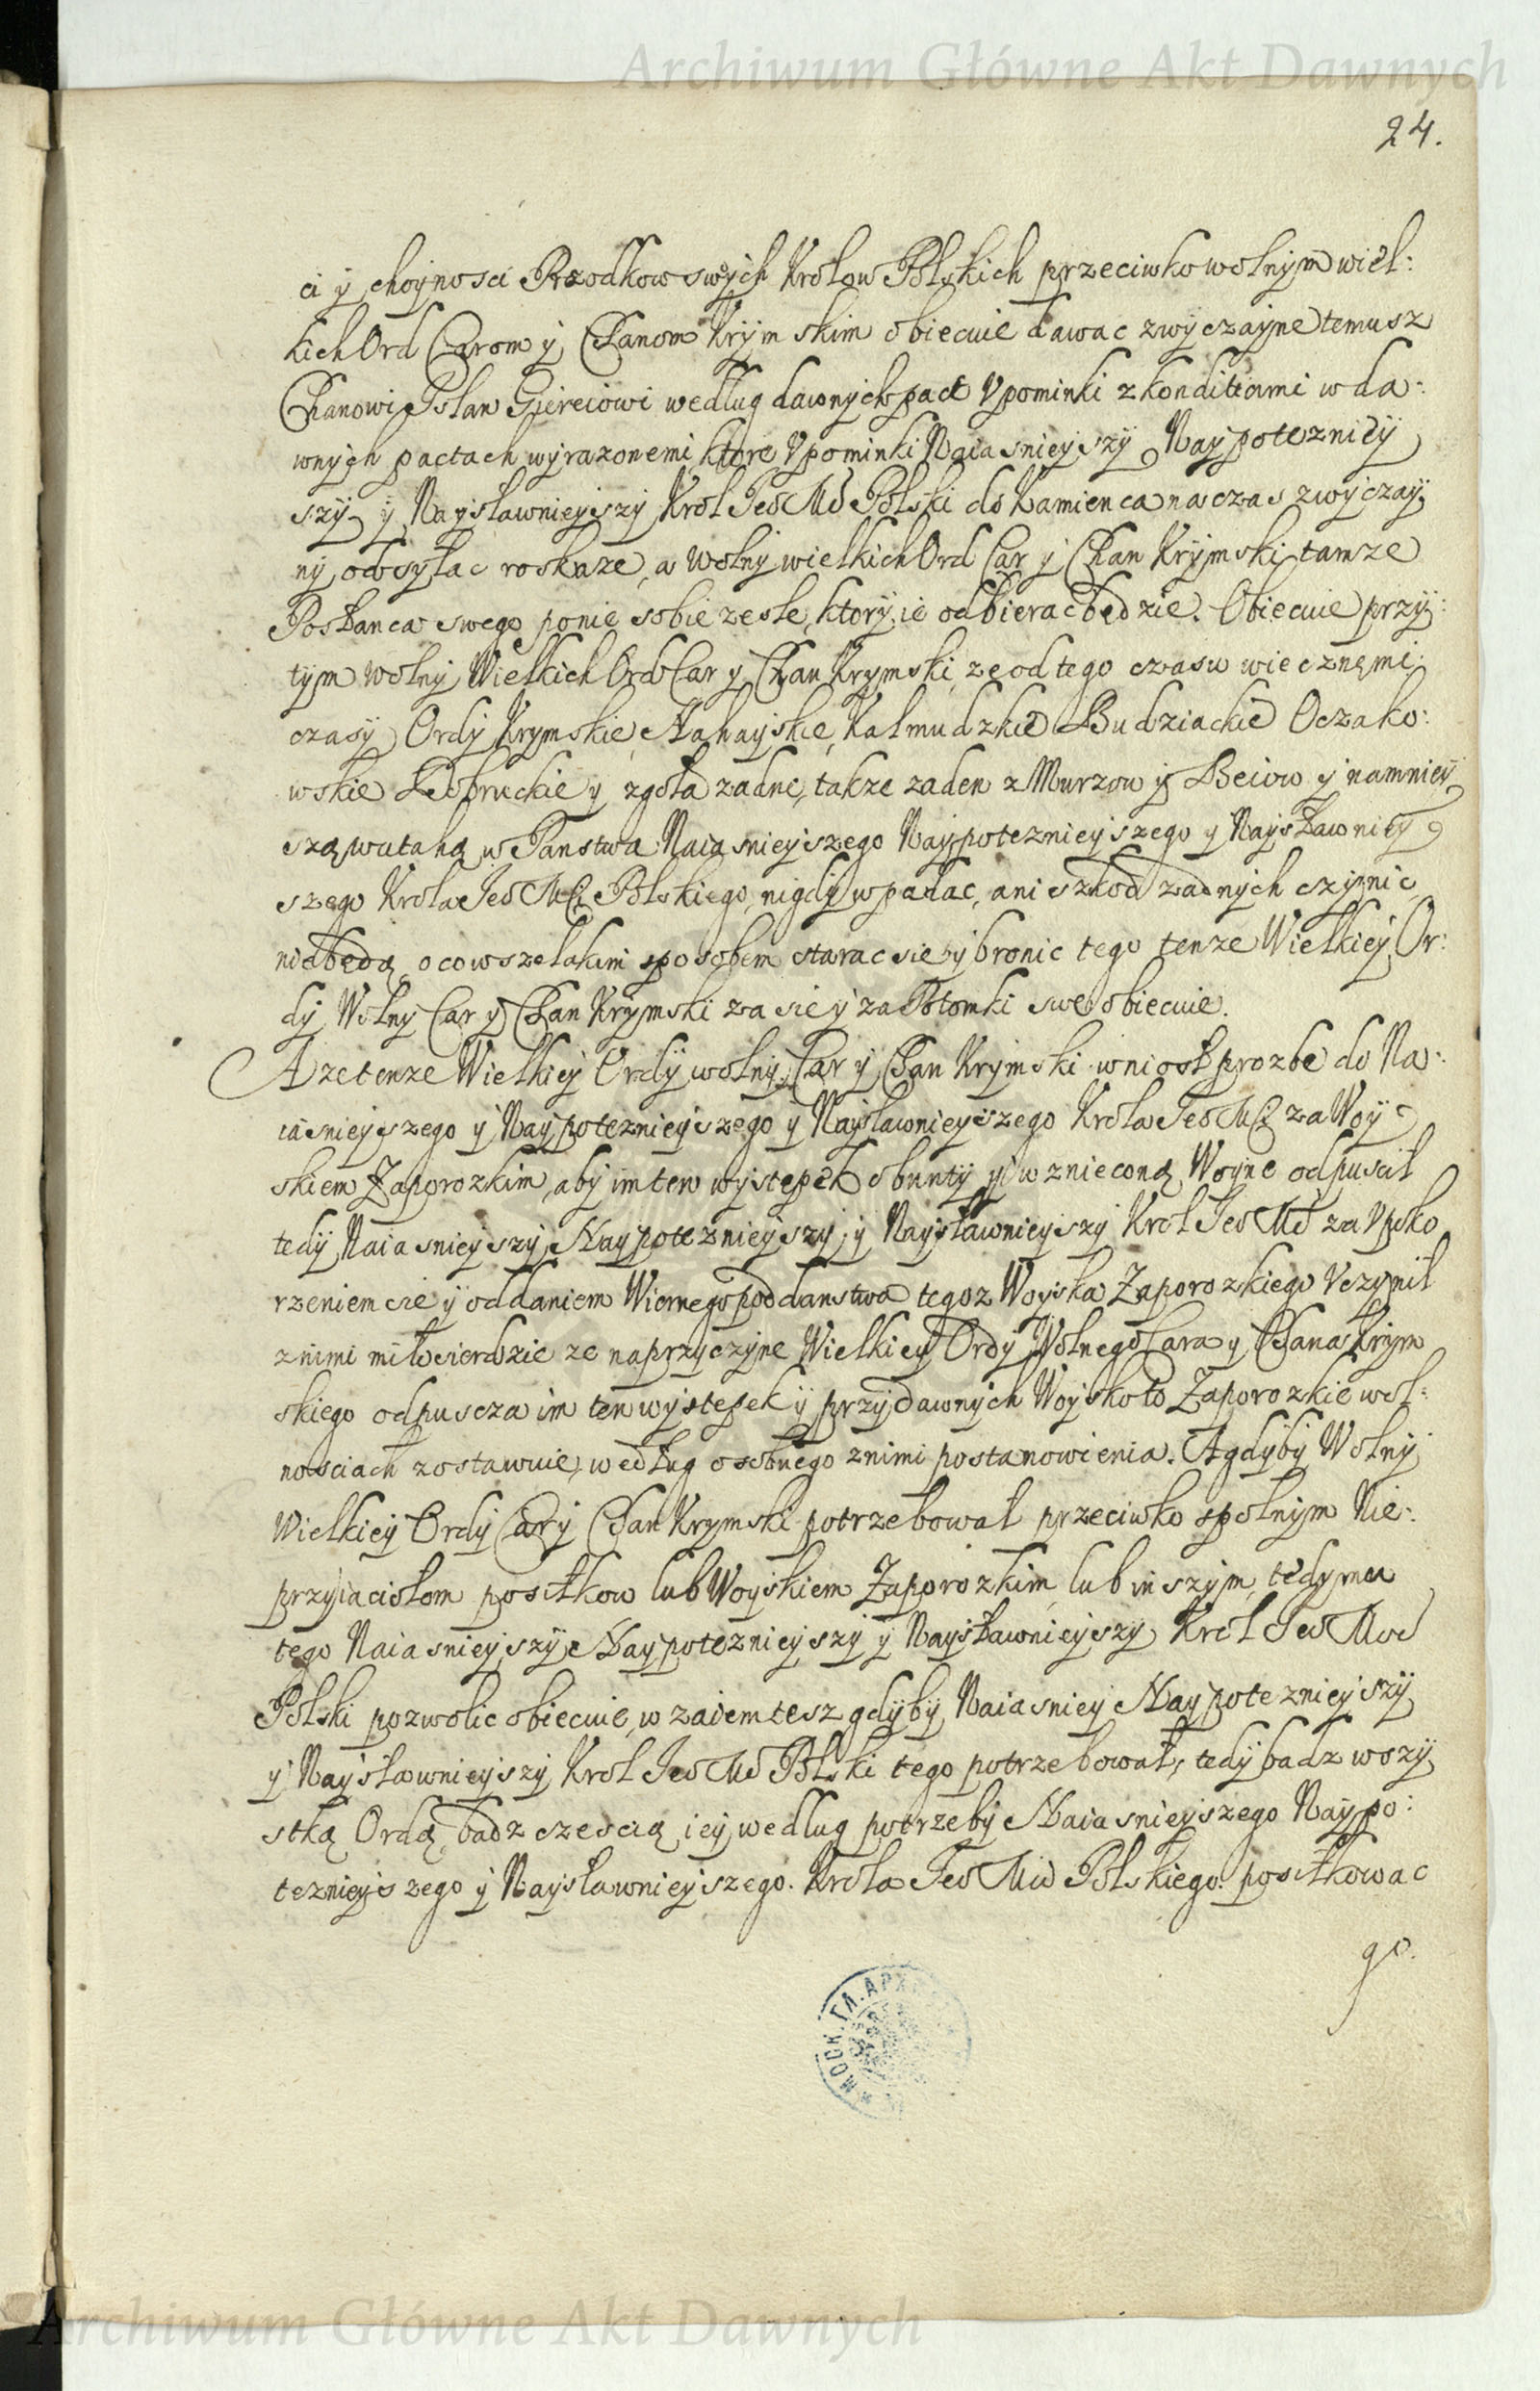 Archiwum Główne Akt Dawnych
24.
ci y choynosci Przodkow swych Krolow Polskich przeciwko wolnym wiel:
kich Ord Carom y Chanom Krymskim obiecuie dawac zwyczayne temusz
Chanowi Islan Giereiowi według dawnych pact Vpominki z konditiami w da:
wnych pactach wyrazonemi, ktore Vpominki Naiasnieyszy Naypotezniey
szy y Naysławnieyszy Krol Jeo Mć Polski do Kamienca na czas zwyczay
ny odsyłac roskaze, a wolny wielkich Ord Car y Chan Krymski tamze
Posłanca swego ponie sobie zesle, ktory ie odbierac będzie. Obiecuie przy:
tym wolny Wielkich Ord Car y Chan Krymski, ze od tego czasu wiecznemi
czasy Ordy Krymskie, Nahayskie, Kałmudzkie Budziackie Oczako:
wskie Dobruckie y zgoła zadne, takze zaden z Murzow y Beiow y namniey
szą watahą w Panstwa Naiasnieyszego Naypoteznieyszego y Naysławniey
szego Krola Jeo Mći Polskiego, nigdy wpadac, ani szkod zadnych czynic
nie będą, o co wszelakim sposobem starac sie y bronic tego tenze Wielkiey Or:
dy Wolny Car y Chan Krymski za sie y za Potomki swe obiecuie.
A ze tenze Wielkiey Ordy wolny Car y Chan Krymski wniosł prozbe do Na:
iasnieyszego y Naypoteznieyszego y Naysławnieyszego Krola Jeo Mći za Woy
skiem Zaporozkim, aby im ten wystepek o bunty y wzniecong Woyne odpuscił
tedy Naiasnieyszy, Naypoteznieyszy, y Naysławnieyszy Krol Jeo Mć za Vpoko
rzeniem sie y oddaniem Wiernego poddanstwa tegoz Woyska Zaporozkiego Vczynił
z nimi miłosierdzie ze na przyczyne Wielkiey Ordy Wolnego Cara y Chana Krym
skiego odpuscza im ten wystepek y przy dawnych Woysko to Zaporozkie wol:
nosciach zostawuie, według osobnego z nimi postanowienia. A gdyby Wolny
Wielkiey Ordy Car y Chan Krymski potrzebował przeciwko spolnym Nie:
przyiaciołom posiłkow lub Woyskiem Zaporozkim, lub inszym, tedy mu
tego Naiasnieyszy, Naypoteznieyszy y Naysławnieyszy Krol Jeo Mść
Polski pozwolic obiecuie, w zaiem tesz gdyby Naiasniey Naypoteznieyszy
y Naysławnieyszy Krol Jeo Mć Polski tego potrzebował, tedy badz wszy
stką Ordą, badz czescią iey według potrzeby Naiasnieyszego Naypo:
teznieyszego y Naysławnieyszego. Krola Jeo Mści Polskiego. posiłkowac
go.
МОСК. ГЛ. АРХ
Archiwum Główne Akt Dawnych